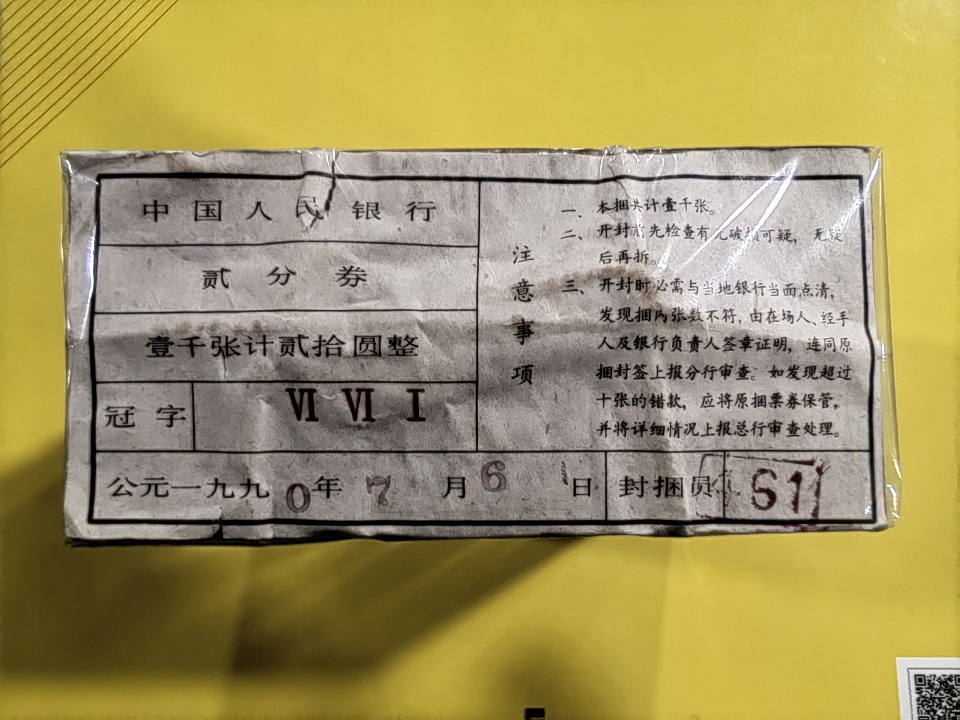 中国人民银行
贰分券
壹千张计贰拾圆整
冠字 Ⅵ Ⅵ Ⅰ
公元一九九0年7月6日
封捆员 61
注意事项
一、本捆共计壹千张。
二、开封前先检查有无破损可疑，无疑
后再拆。
三、开封时必需与当地银行当面点清，
发现捆内张数不符，由在场人、经手
人及银行负责人签章证明，连同原
捆封签上报分行审查。如发现超过
十张的错款，应将原捆票券保管，
并将详细情况上报总行审查处理。